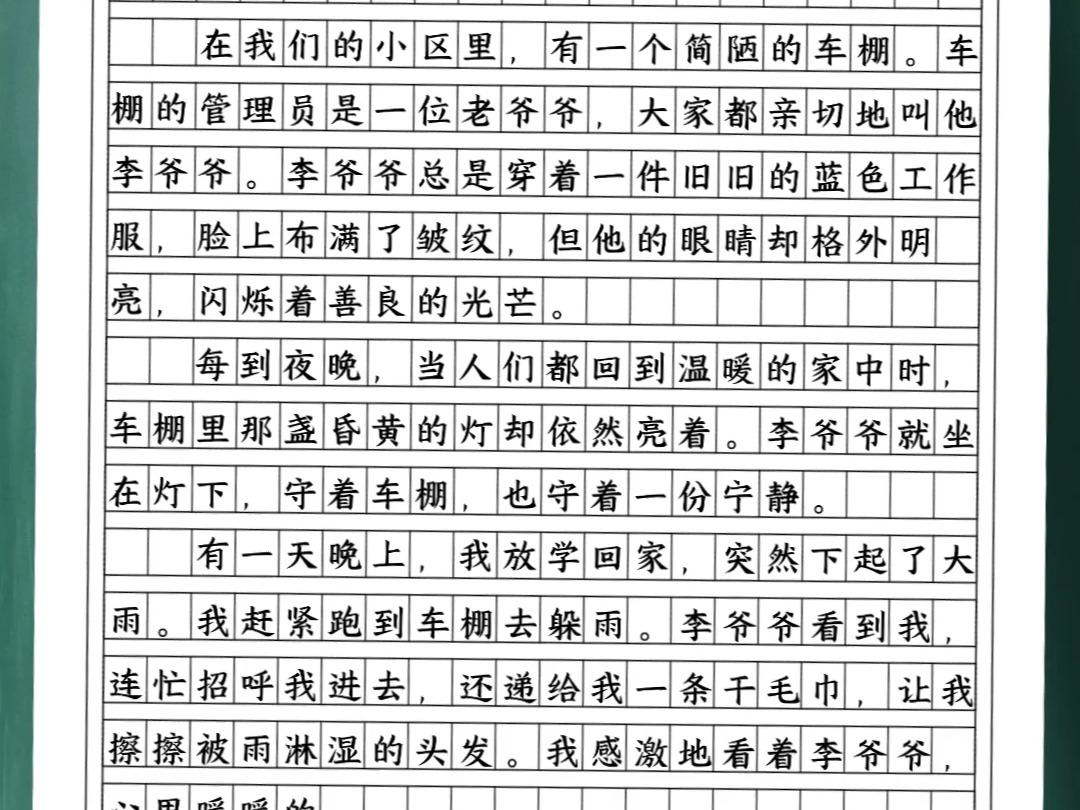 在我们的小区里，有一个简陋的车棚。车
棚的管理员是一位老爷爷，大家都亲切地叫他
李爷爷。李爷爷总是穿着一件旧旧的蓝色工作
服，脸上布满了皱纹，但他的眼睛却格外明
亮，闪烁着善良的光芒。
每到夜晚，当人们都回到温暖的家中时，
车棚里那盏昏黄的灯却依然亮着。李爷爷就坐
在灯下，守着车棚，也守着一份宁静。
有一天晚上，我放学回家，突然下起了大
雨。我赶紧跑到车棚去躲雨。李爷爷看到我，
连忙招呼我进去，还递给我一条干毛巾，让我
擦擦被雨淋湿的头发。我感激地看着李爷爷，
心里暖暖的